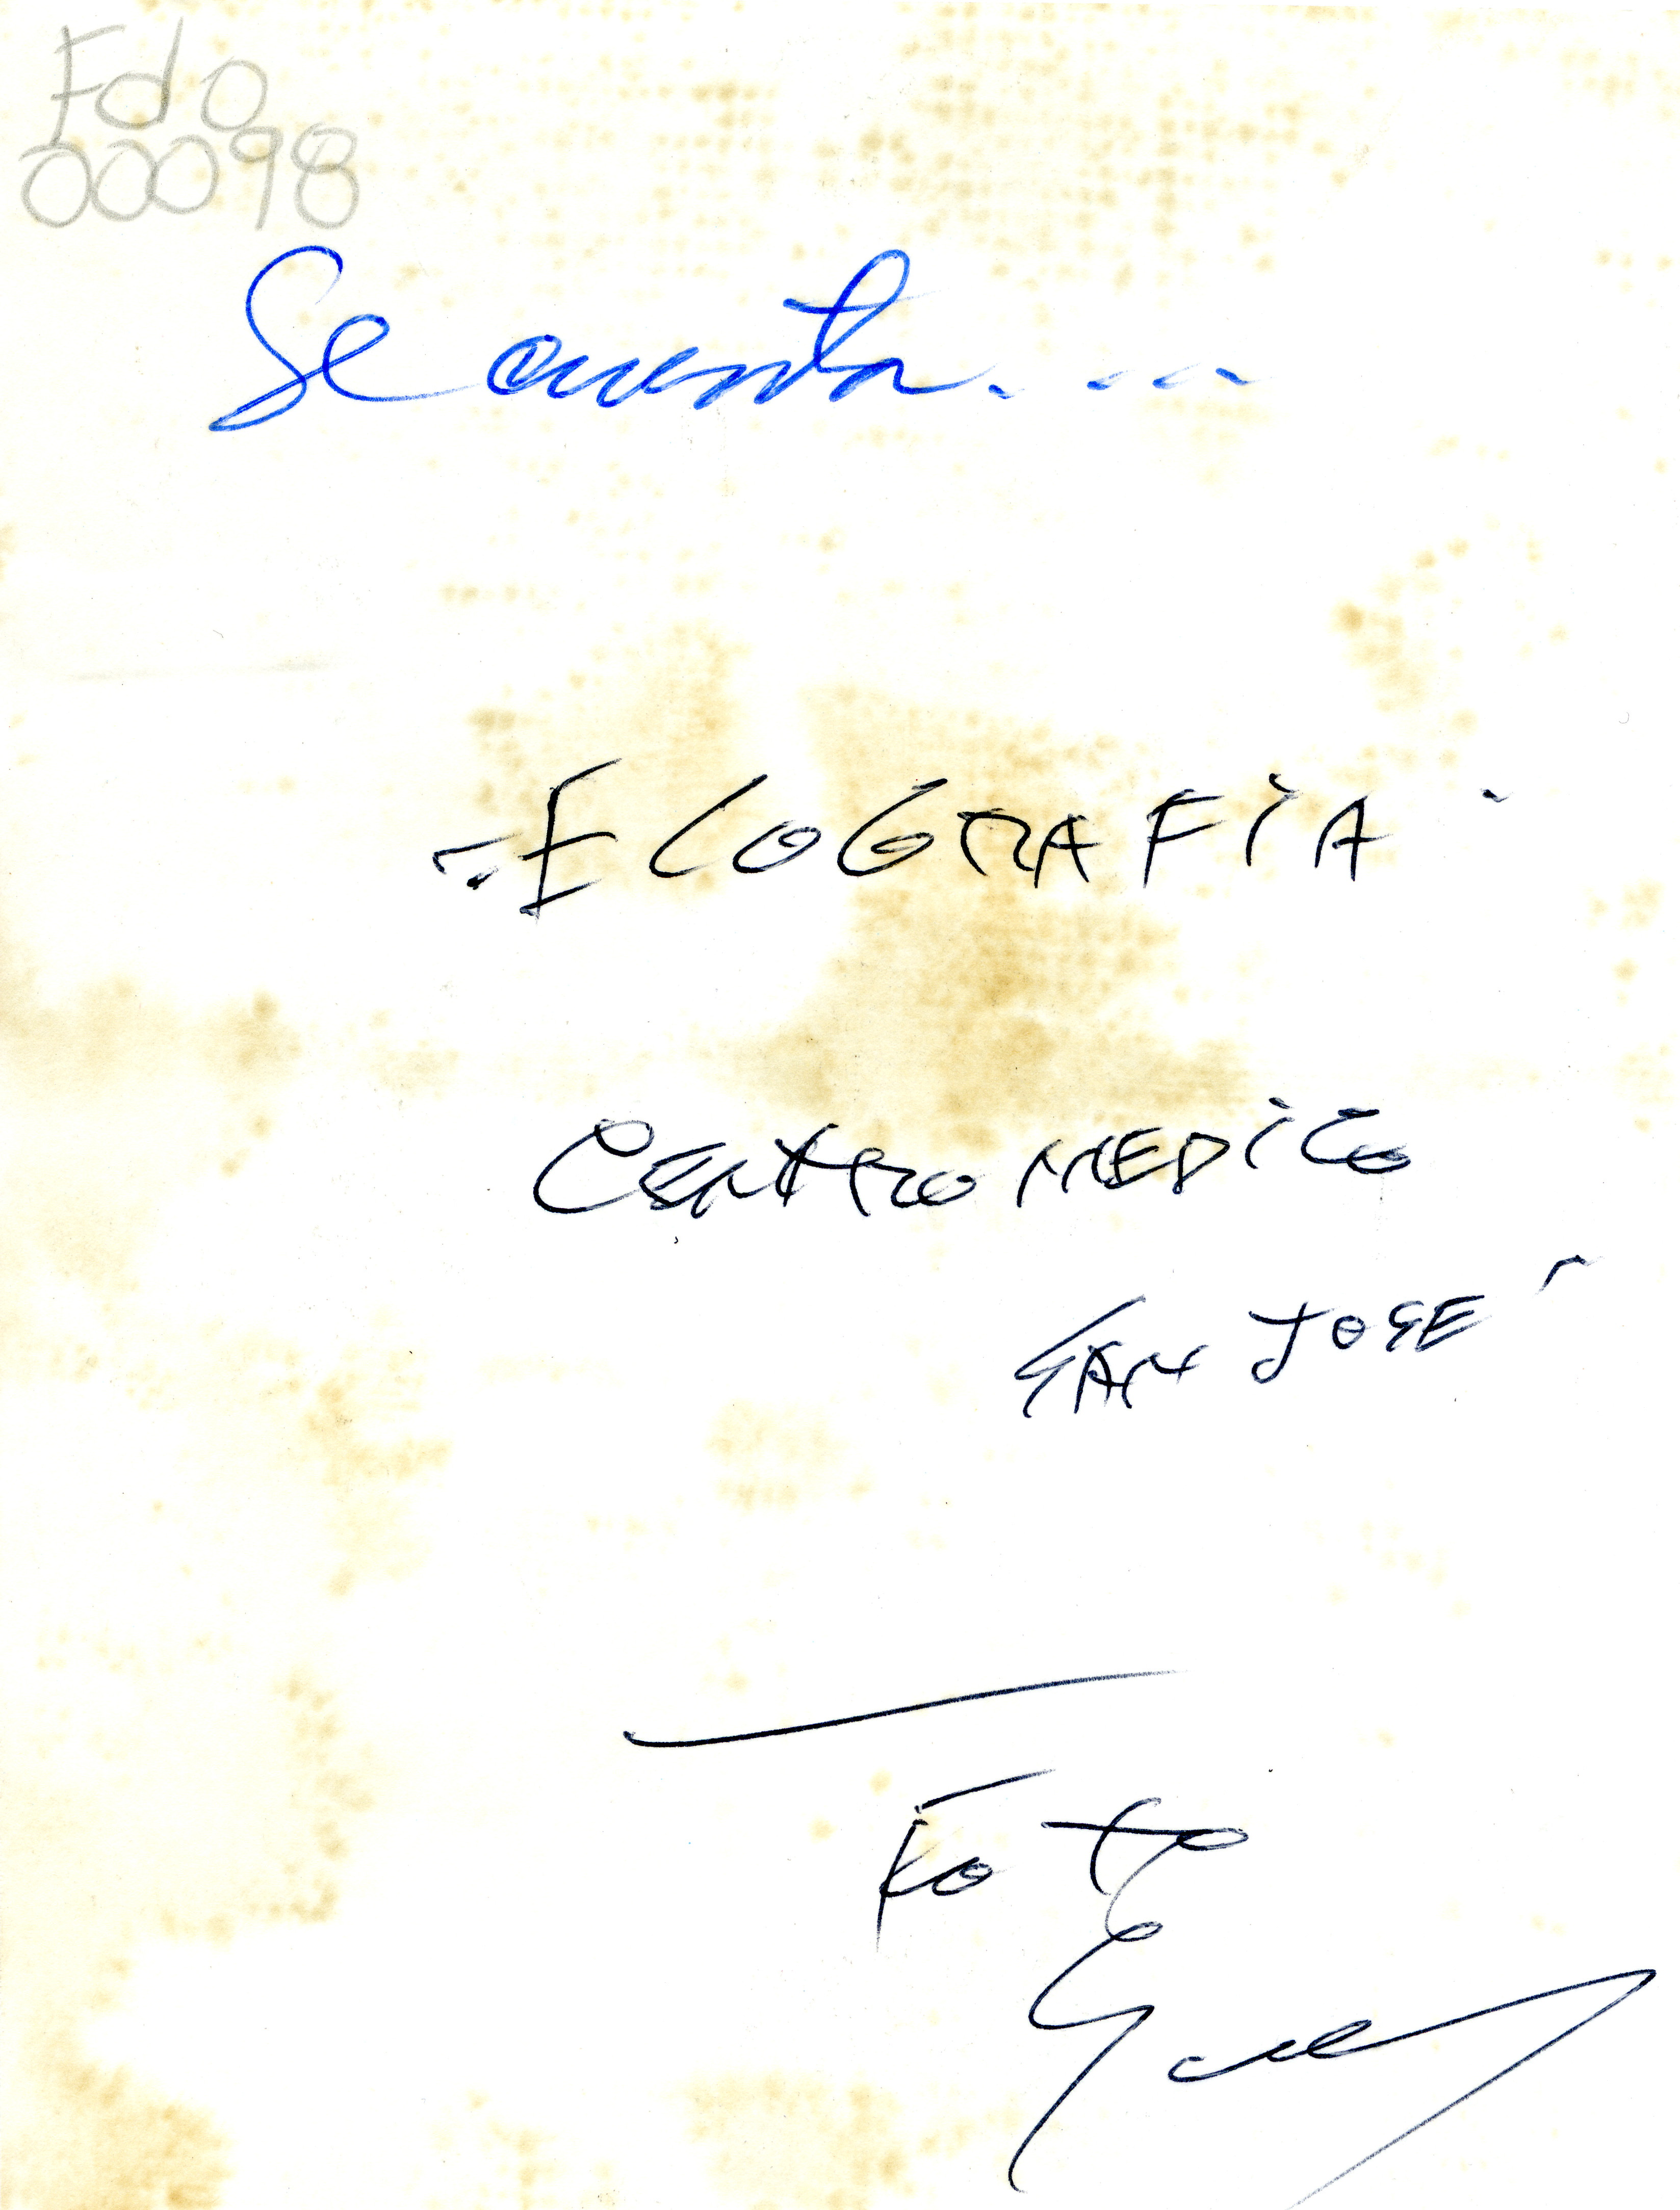 Fdo
00098
Se cuenta....
"ECOGRAFIA"
CENTRO MEDICO
SAN JOSE"
Foto